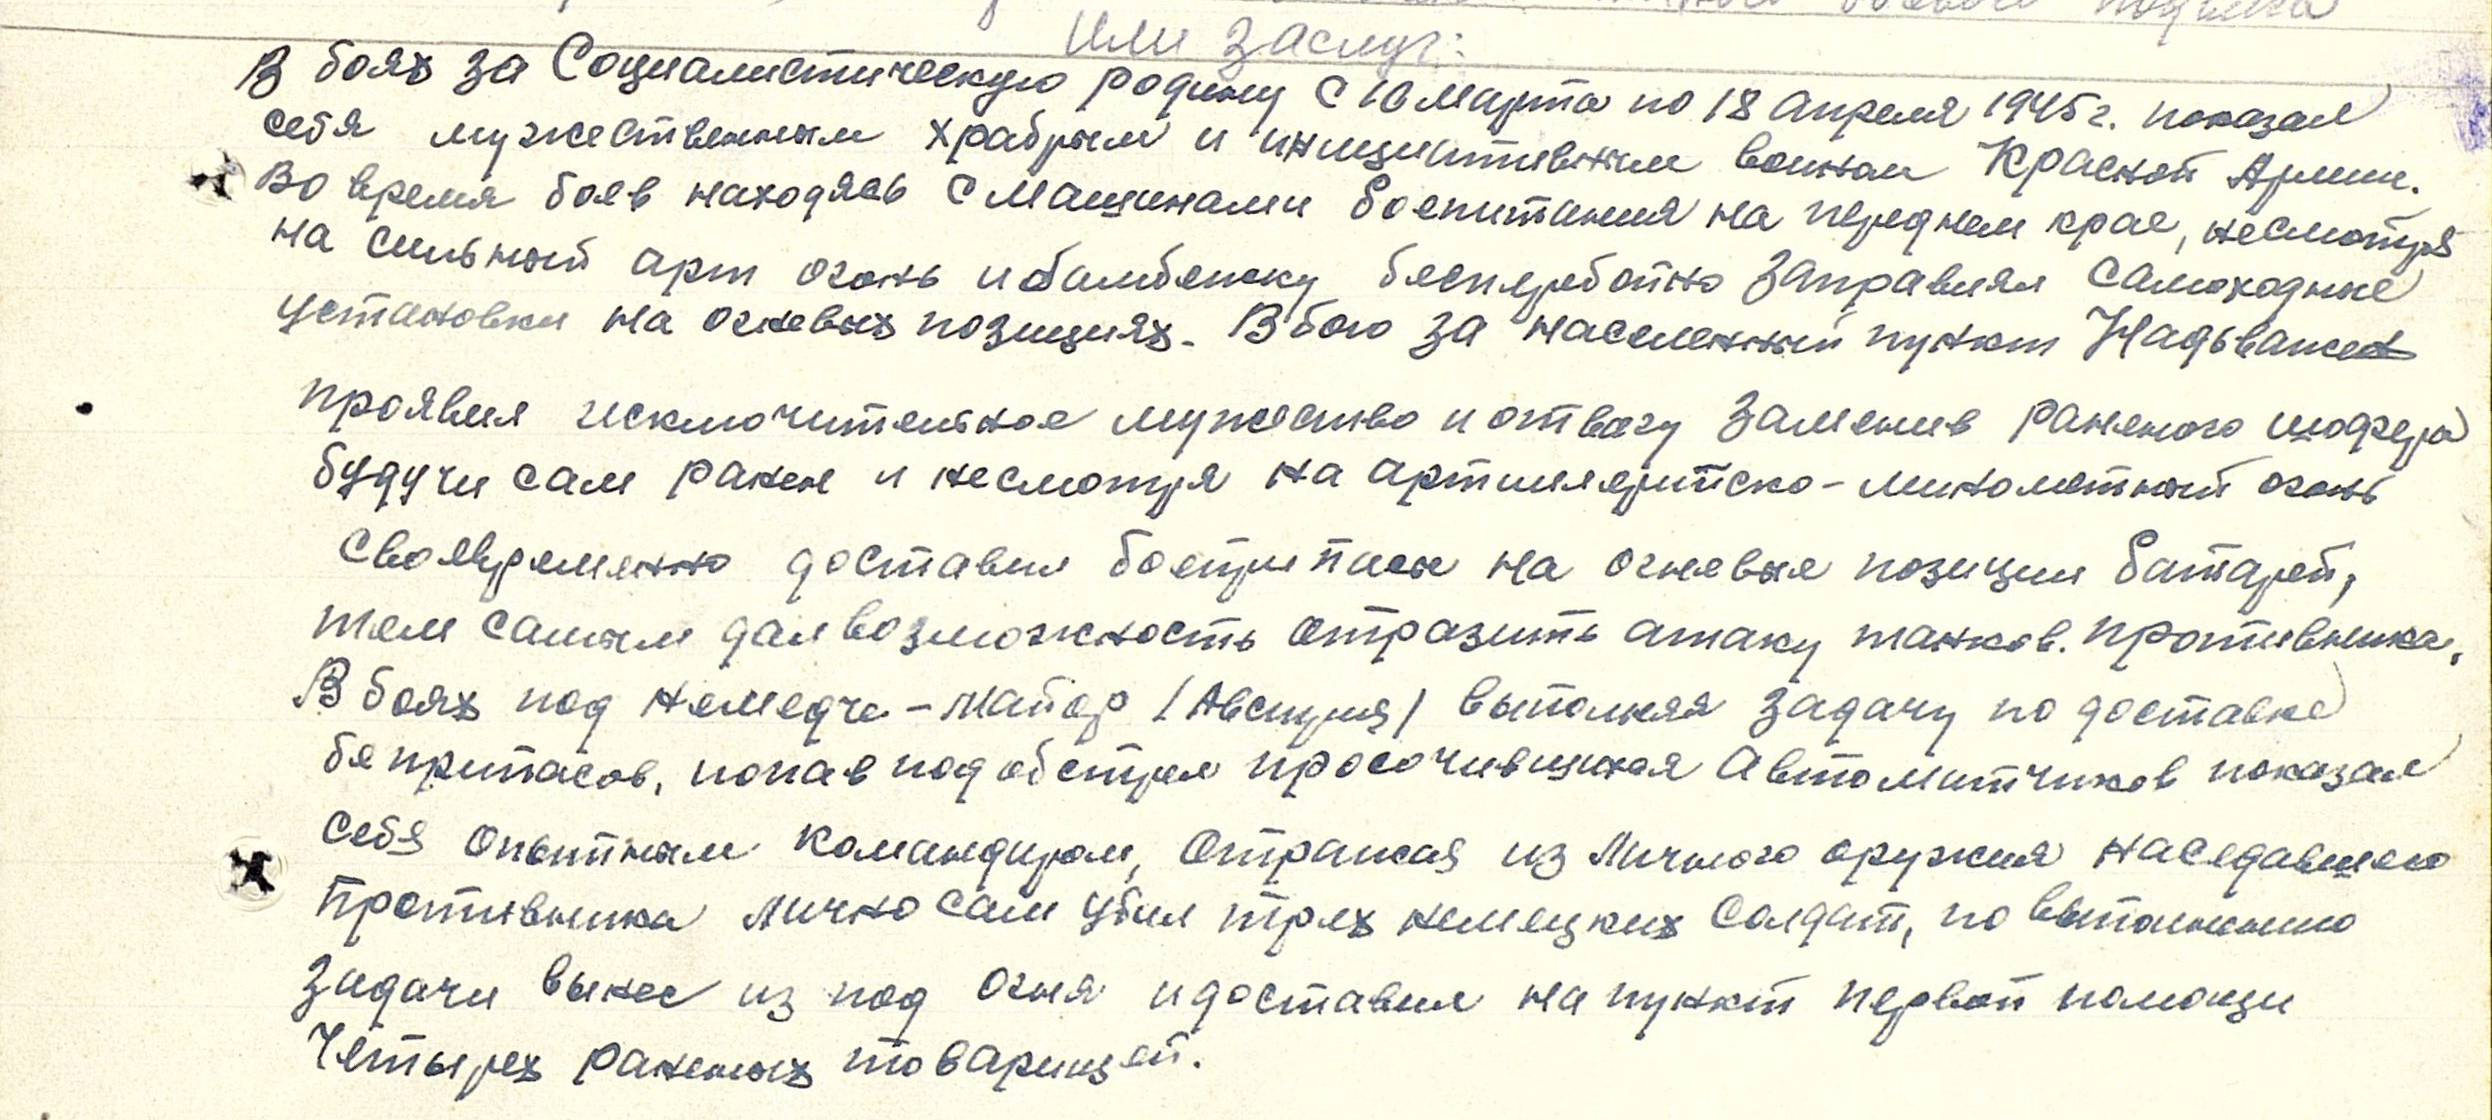 боевого подвига
или заслуг:
В боях за Социалистическую родину с 10 марта по 18 апреля 1945 г. показал
себя мужественным храбрым и инициативным воином Красной Армии.
Во время боев находясь с машинами боепитания на переднем крае, несмотря
на сильный арт огонь и бомбежку бесперебойно заправлял самоходные
установки на огневых позициях. В бою за населенный пункт
проявил исключительное мужество и отвагу заменив раненого шофера
будучи сам ранен и несмотря на артиллерийско-минометный огонь
своевременно доставил боеприпасы на огневые позиции батарей,
тем самым дал возможность отразить атаку танков. противника.
В боях под Немедче-Майор /Австрия/ выполняя задачу по доставке
беприпасов, попав под обстрел просочившихся автоматчиков показал
себя опытным командиром, отражая из личного оружия наседавшего
противника лично сам убил трех немецких солдат, по выполнению
задачи вынес из под огня и доставил на пункт первой помощи
четырех раненых товарищей.